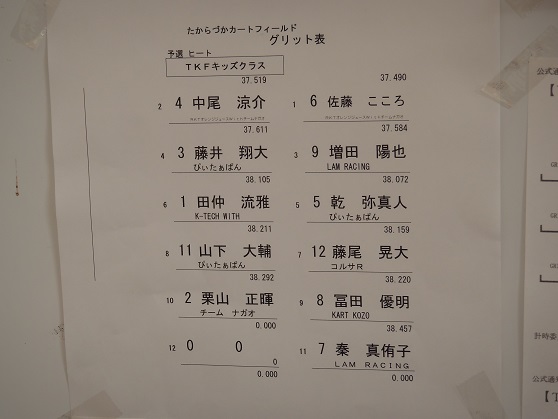 たからづかカートフィールド
グリット表
予選 ヒート
TKFキッズクラス
37.519 37.490
2 4 中尾 涼介 1 6 佐藤 こころ
37.611 37.584
4 3 藤井 翔大 3 9 増田 陽也
ぴぃたぁぱん LAM RACING
38.105 38.072
6 1 田仲 流雅 5 5 乾 弥真人
K-TECH WITH ぴぃたぁぱん
38.211 38.159
8 11 山下 大輔 7 12 藤尾 晃大
ぴぃたぁぱん コルサR
38.292 38.220
10 2 栗山 正暉 9 8 冨田 優明
チーム ナガオ KART KOZO
0.000 38.457
12 0 0 11 7 秦 真侑子
0 LAM RACING
0.000 0.000
公式通
計時委
公式通